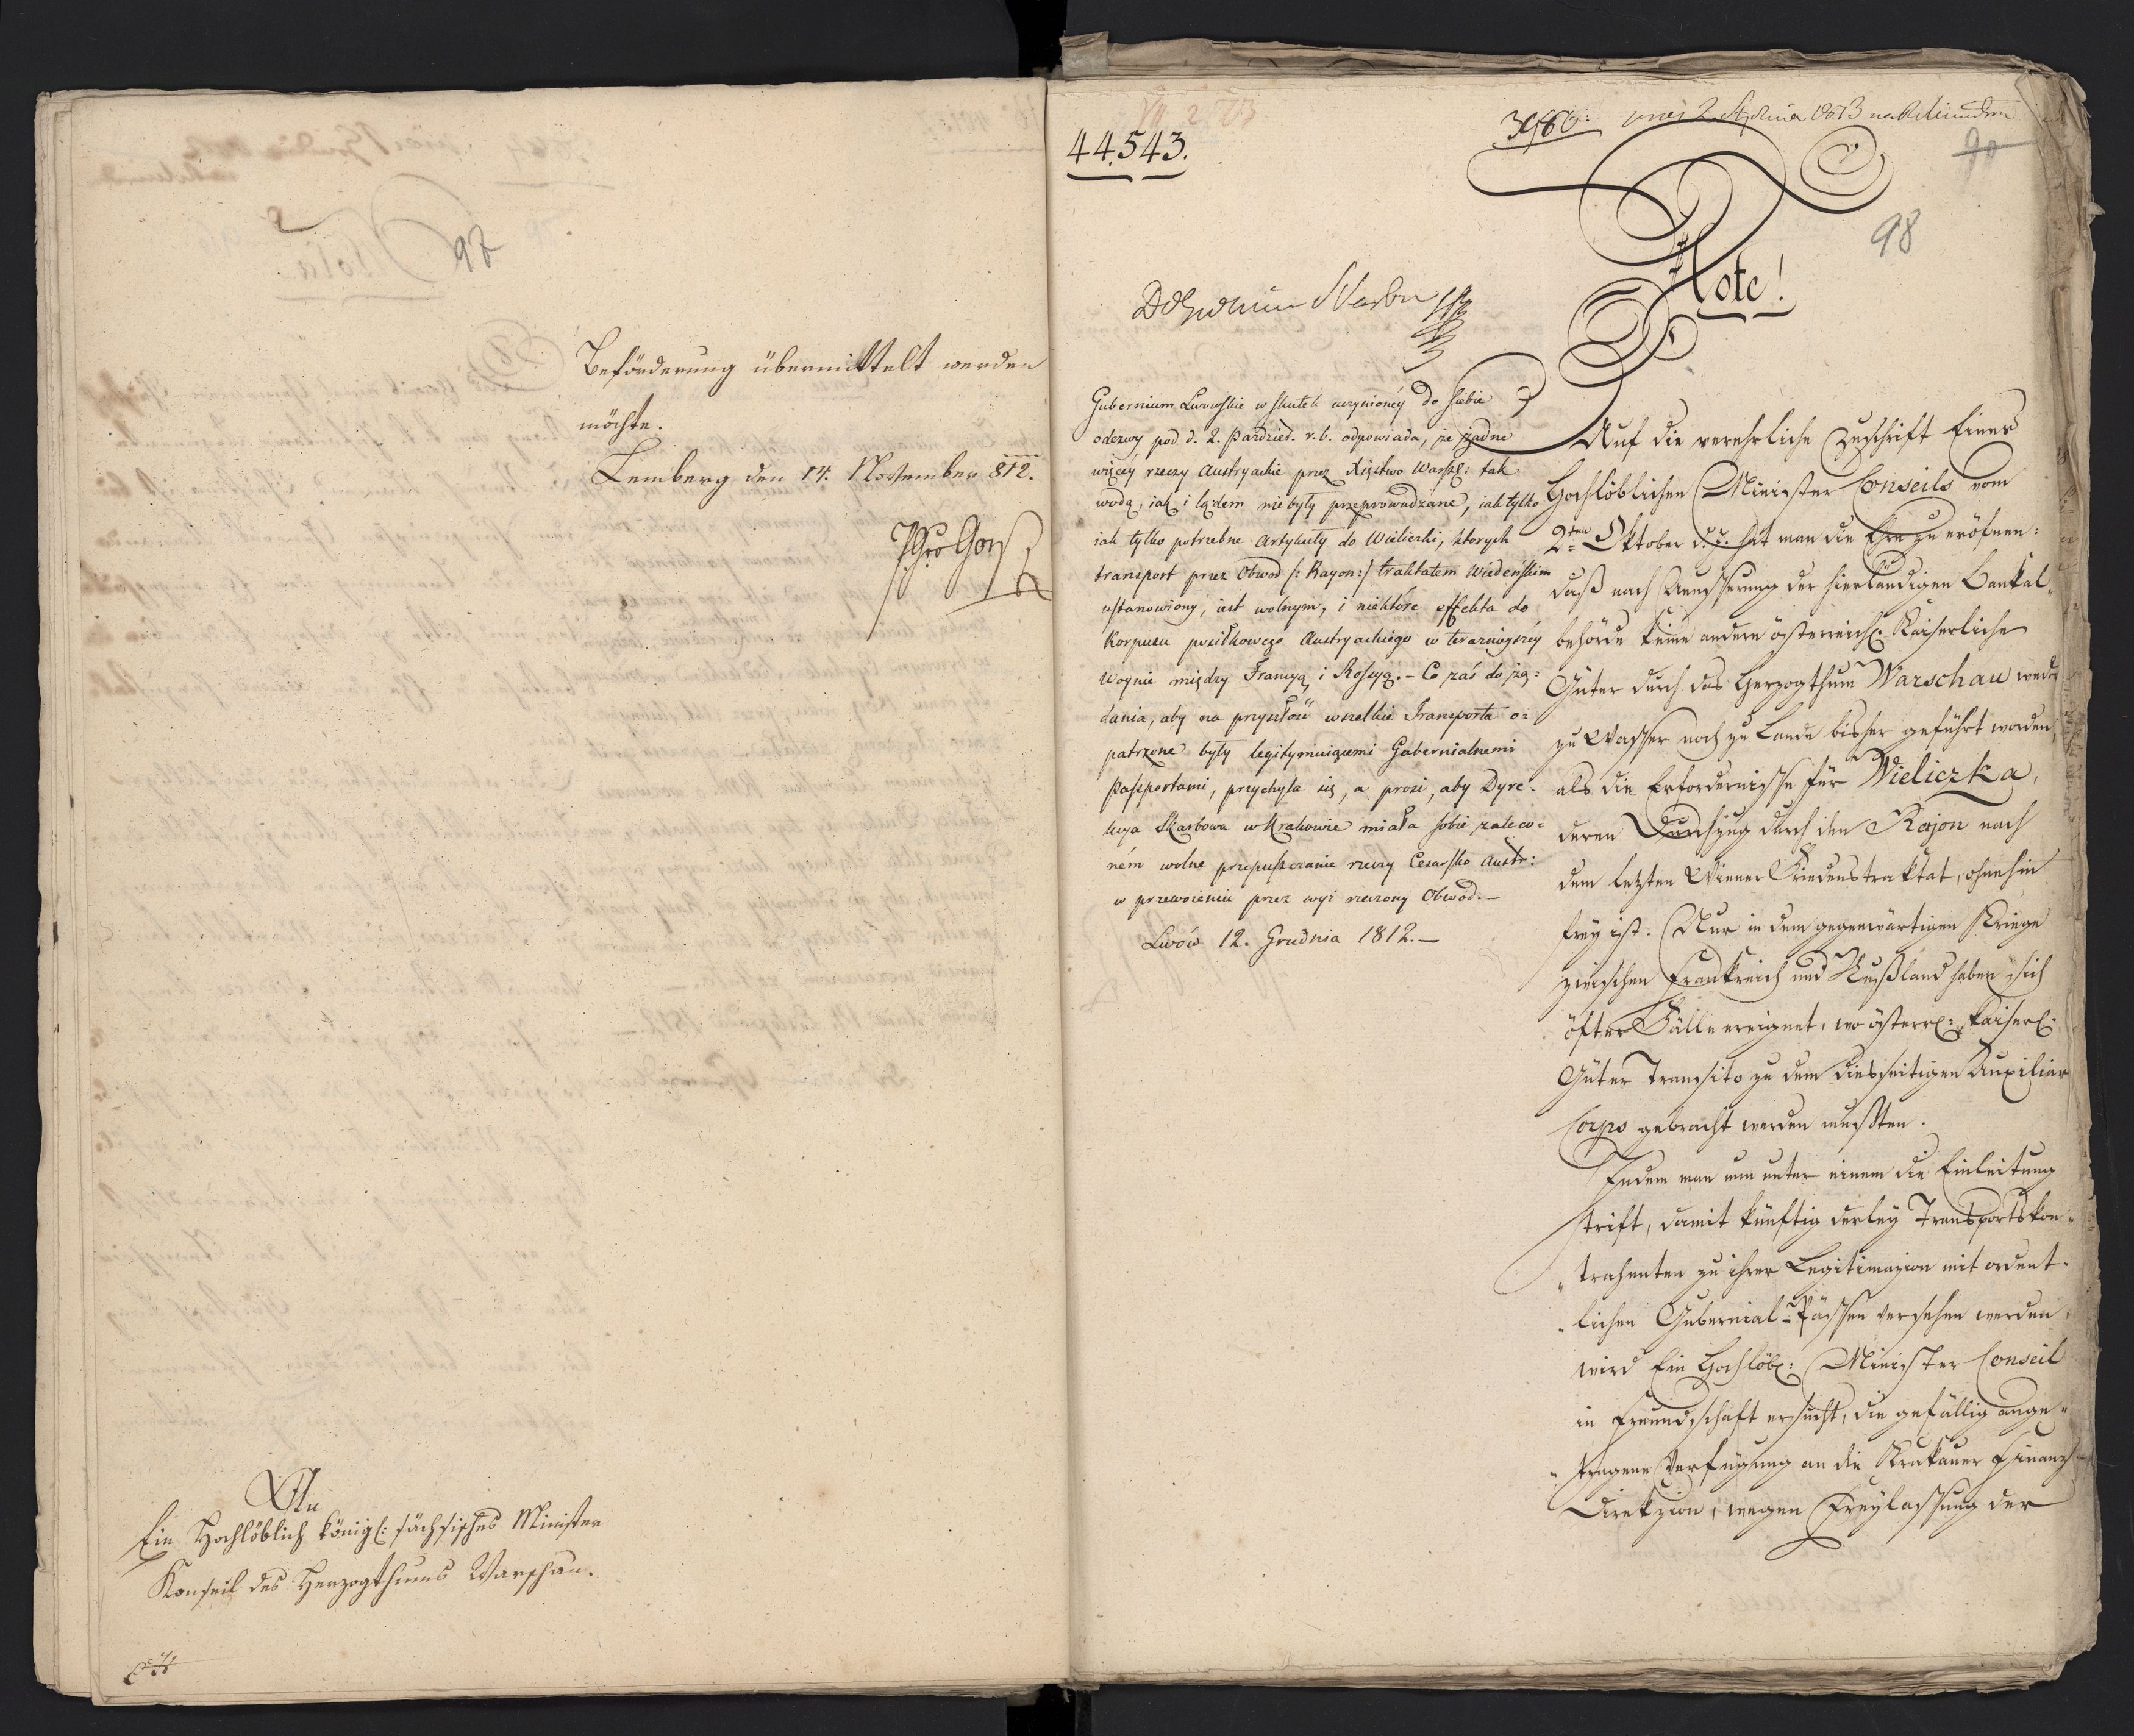 97
Beförderung übermittelt werden
möchte.
Lemberg den 14. November 812.
An
Ein Hochlöblich königl: sächsisches Minister
Konseil des Herzogthums Warschau.
44.543.
98
Note!
Gubernium Lwowskie w skutek uczynioney do siebie
odezwy pod d. 2. Paździer. r. b. odpowiada, że żadne
więcéy rzeczy Austryackie przez Xięstwo Warsz: tak
wodą, iak i lądem nie były przeprowadzane, iak tylko
iak tylko potrzebne Artykuły do Wieliczki, których
transport przez Obwod /: Rayon :/ traktatem Wiedeńskim
ustanowiony, iest wolnym, i niektóre effekta do
Korpusu posiłkowego Austryackiego w teraźnieyszéy
Woynie między Francyą i Rossyą. – Co zaś do żą=
dania, aby na przyszłość wszelkie Transporta o=
patrzone były legitymuiącemi Gubernialnemi
Passportami, przychyla się, a prosi, aby Dyre=
kcya Skarbowa w Krakowie miała sobie zaleco=
ném wolne przepuszczanie rzeczy Cesarsko Austr:
w przewozieniu przez wyż rzeczony Obwod. –
Lwów 12. Grudnia 1812. –
Auf die verehrliche Zuschrift Eines
Hochlöblichen Minister Conseils vom
2ten Oktober d. J. hat man die Ehre zu eröfnen:
daß nach Aeusserung der hierländigen Bankal„
behörde keine andere österreich: Kaiserliche
Güter durch das Herzogthum Warschau weder
zu Wasser noch zu Lande bisher geführt worden,
als die Erfordernisse für Wieliczka,
deren Durchzug durch den Rajon nach
dem letzten Wiener Friedenstraktat, ohnehin
frey ist. Nur in dem gegenwärtigen Kriege
zwischen Frankreich und Rußland haben sich
öfter Fälle ereignet, wo österr: Kaiserl:
Güter Transito zu dem diesseitigen Auxiliar
Corps gebracht werden mußten.
Indem man nun unter einem die Einleitung
trift, damit künftig derley Transportskon„
„trahenten zu ihrer Legitimazion mit ordent„
„lichen Gubernial-Pässen versehen werden,
wird Ein Hochlöbl: Minister Conseil
in Freundschaft ersucht, die gefällig ange„
„tragene Verfügung an die Krakauer Finanz
Direkzion, wegen Freylassung der